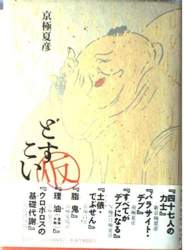 京極夏彦
どすこい(仮)
『四十七人の
力士』
『パラサイト・
デブ』
『すべてが
デブになる』
『土俵・
でぶせん』
『脂鬼』
『理油』
『ウロボロスの
基礎代謝』